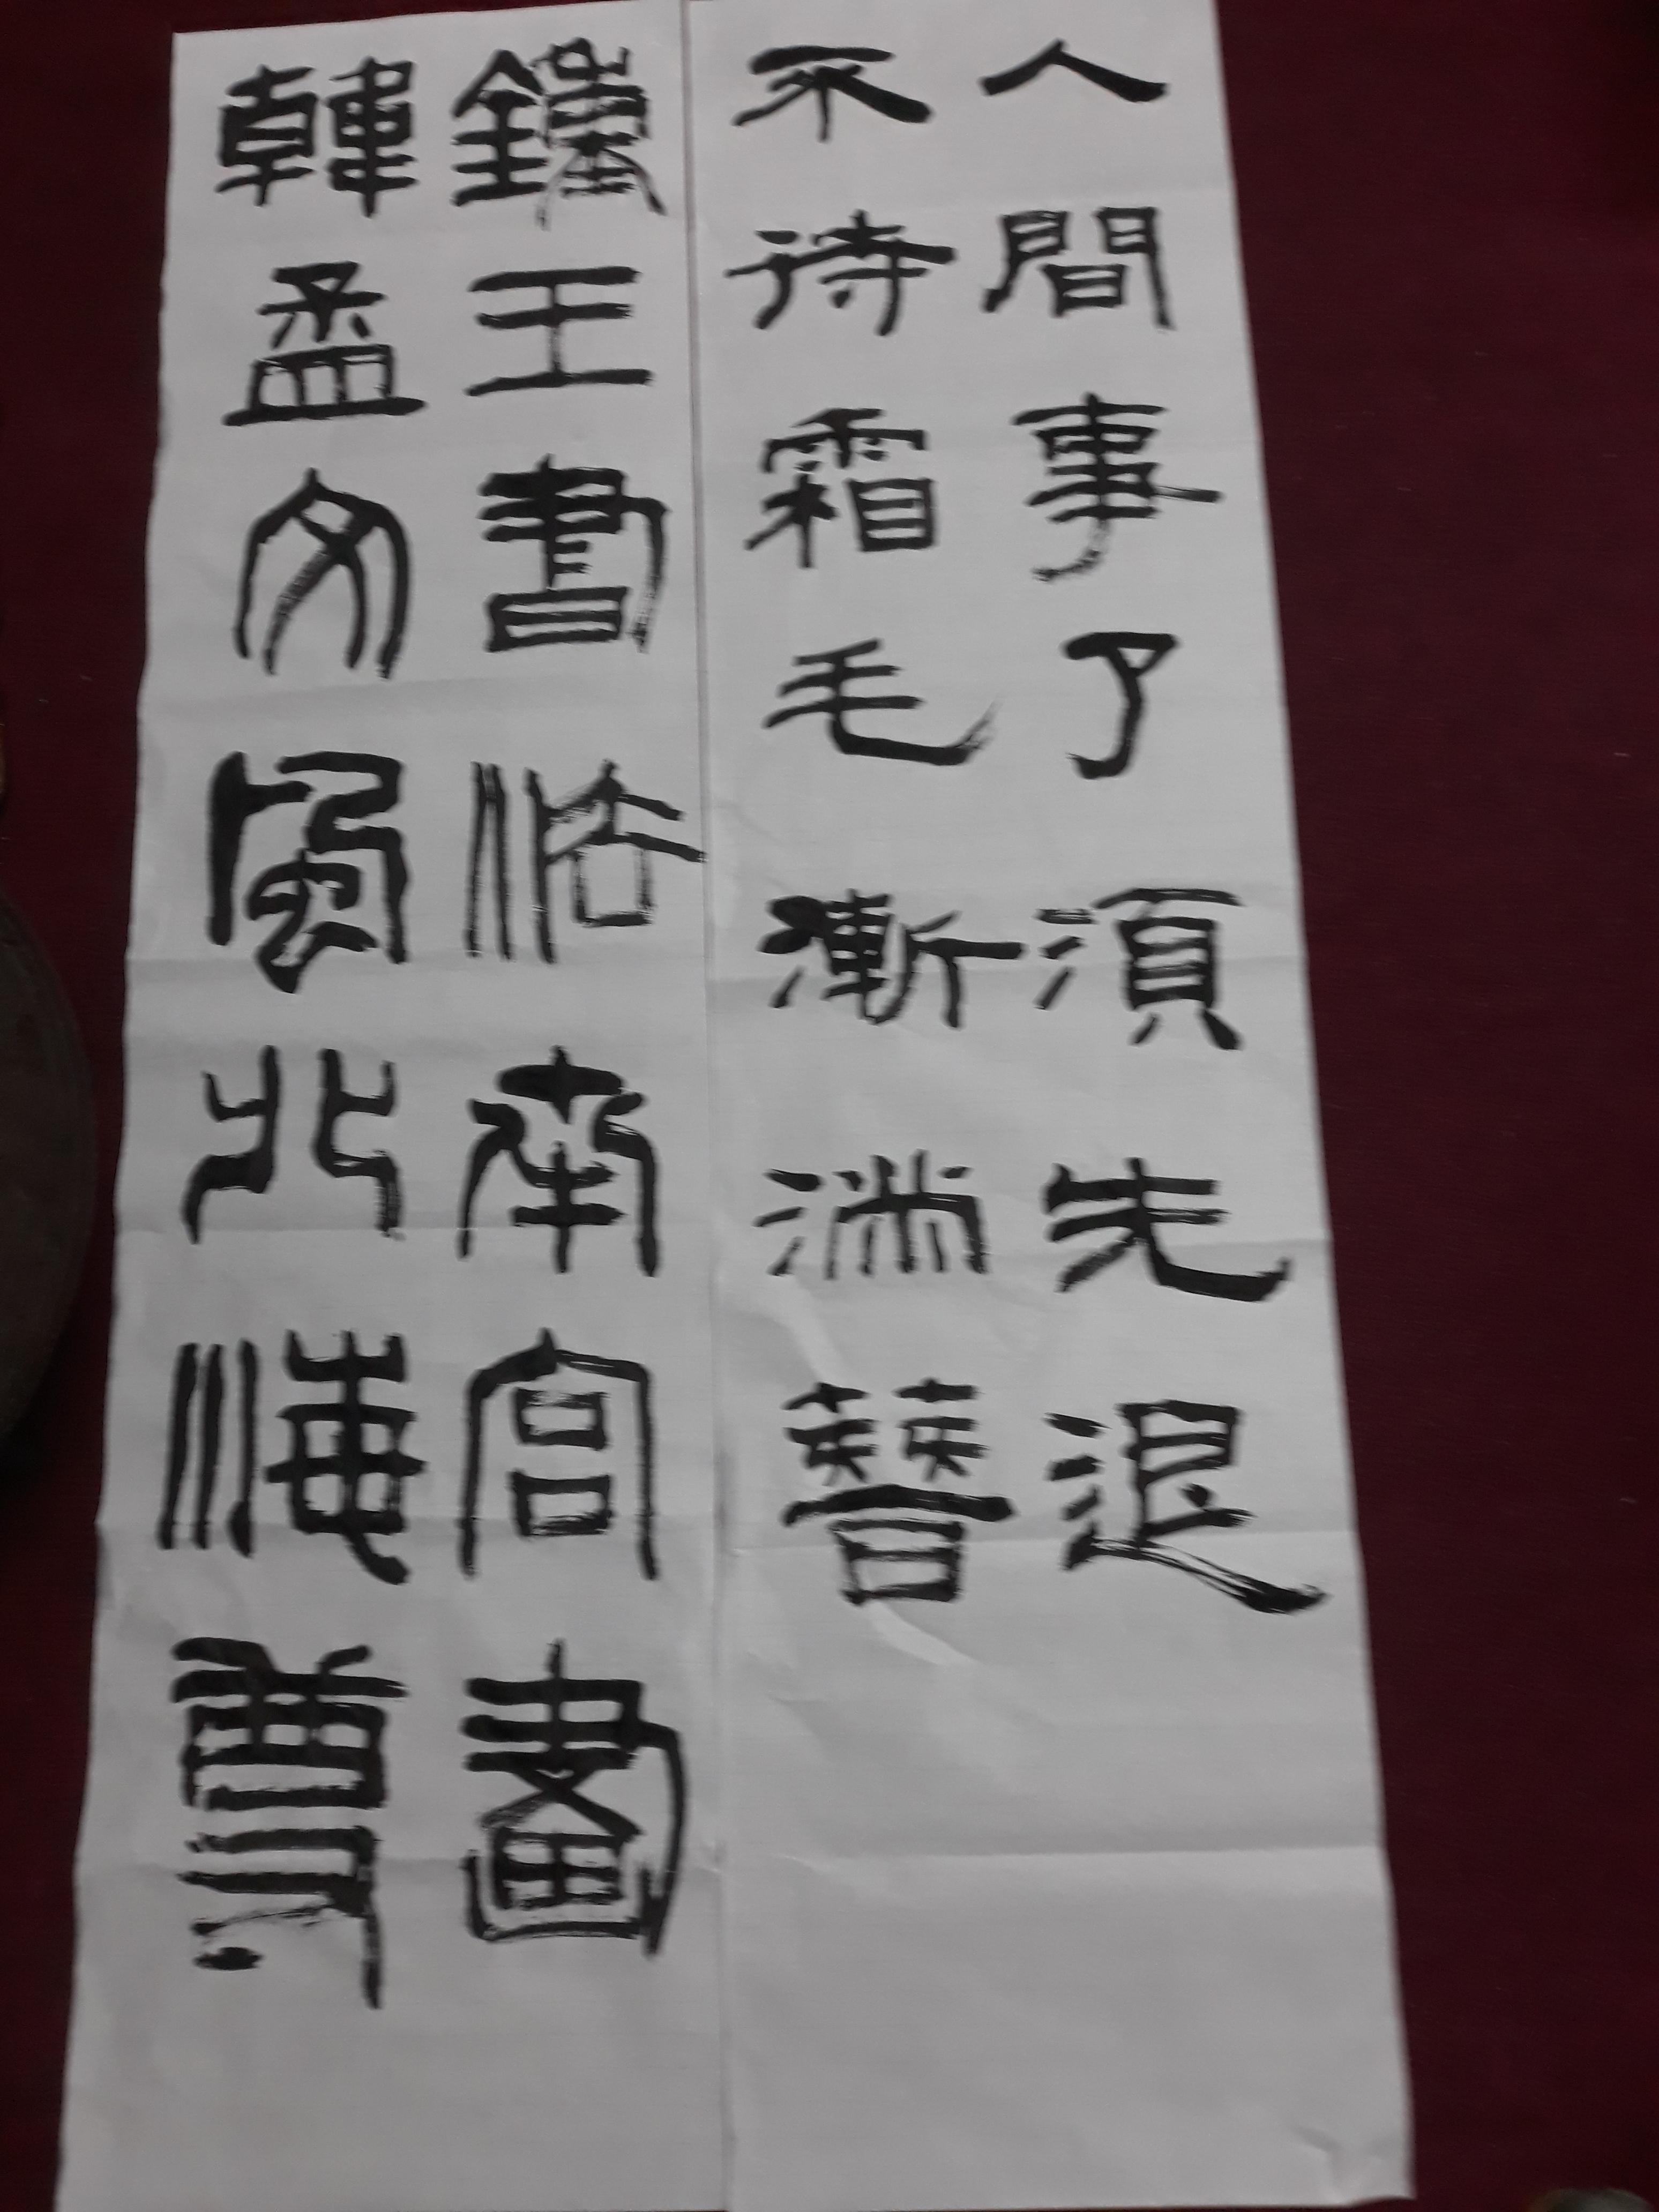 人間事了須先退
不待霜毛漸滿簪
鍾王書法南宮畫
韓孟文風北海尊